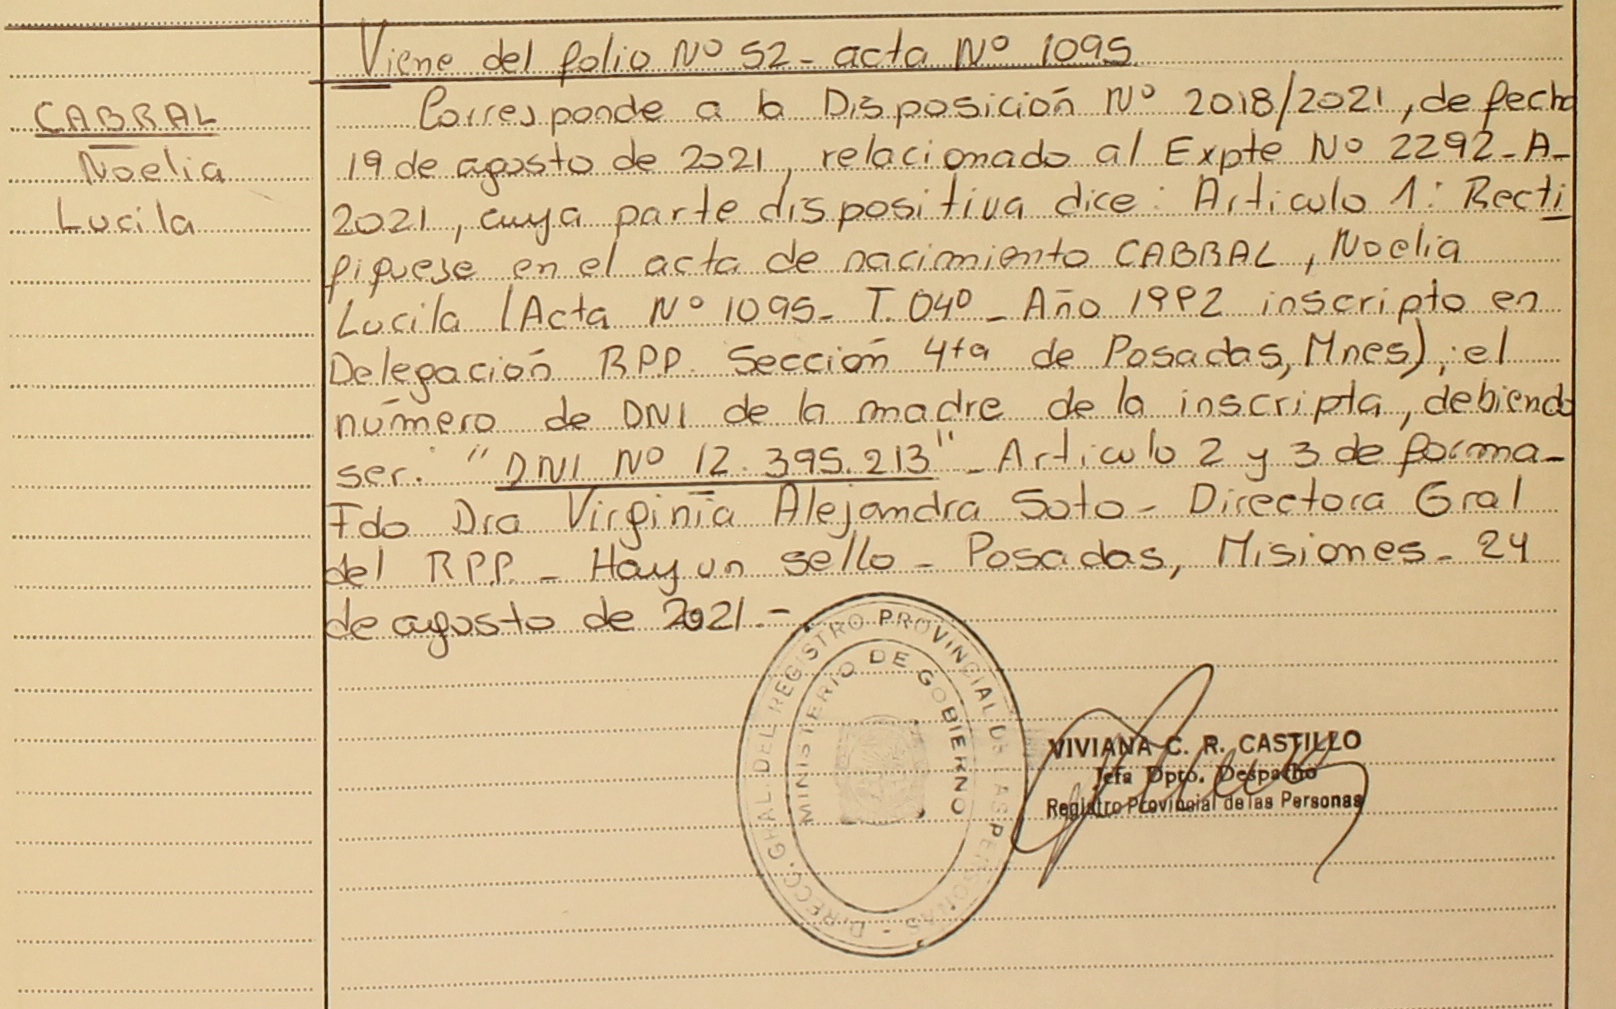 Viene del folio Nº 52 - acta Nº 1095
CABRAL
Noelia
Lucila
Corresponde a la Disposición Nº 2018/2021, de fecha
19 de agosto de 2021, relacionado al Expte Nº 2292-A-
2021, cuya parte dispositiva dice: Articulo 1: Recti
fiquese en el acta de nacimiento CABRAL, Noelia
Lucila (Acta Nº 1095- T. 04º - Año 1992 inscripto en
Delegación RPP. Sección 4ta de Posadas, Mnes); el
número de DNI de la madre de la inscripta, debiendo
ser: "DNI Nº 12.395.213" - Articulo 2 y 3 de forma-
Fdo Dra Virginia Alejandra Soto - Directora Gral
del RPP. - Hay un sello - Posadas, Misiones - 24
de agosto de 2021.-
DIRECC. GRAL. DEL REGISTRO PROVINCIAL DE LAS PERSONAS -
MINISTERIO DE GOBIERNO
VIVIANA C. R. CASTILLO
Jefa Dpto. Despacho
Registro Provincial de las Personas